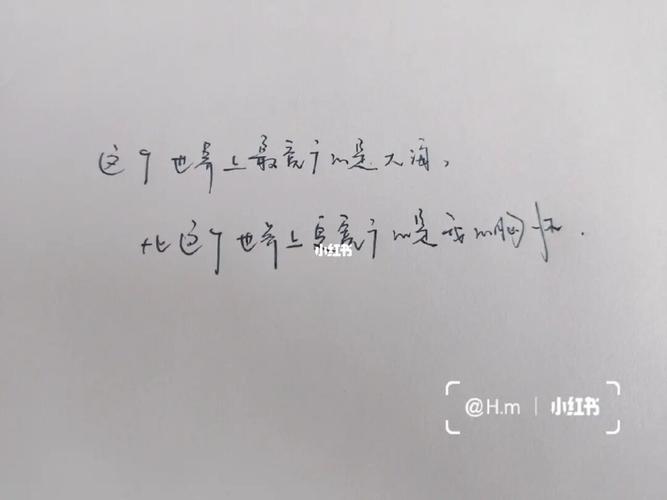 这个世界上最宽广的是大海,
比这个世界上更宽广的是我的胸怀.
小红书
@H.m | 小红书